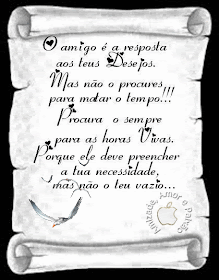 O amigo é a resposta
aos teus Desejos.
Mas não o procures
para matar o tempo!!!
Procura o sempre
para as horas Vivas.
Porque ele deve preencher
a tua necessidade,
mas não o teu vazio...
Amizade Amor e Paixão